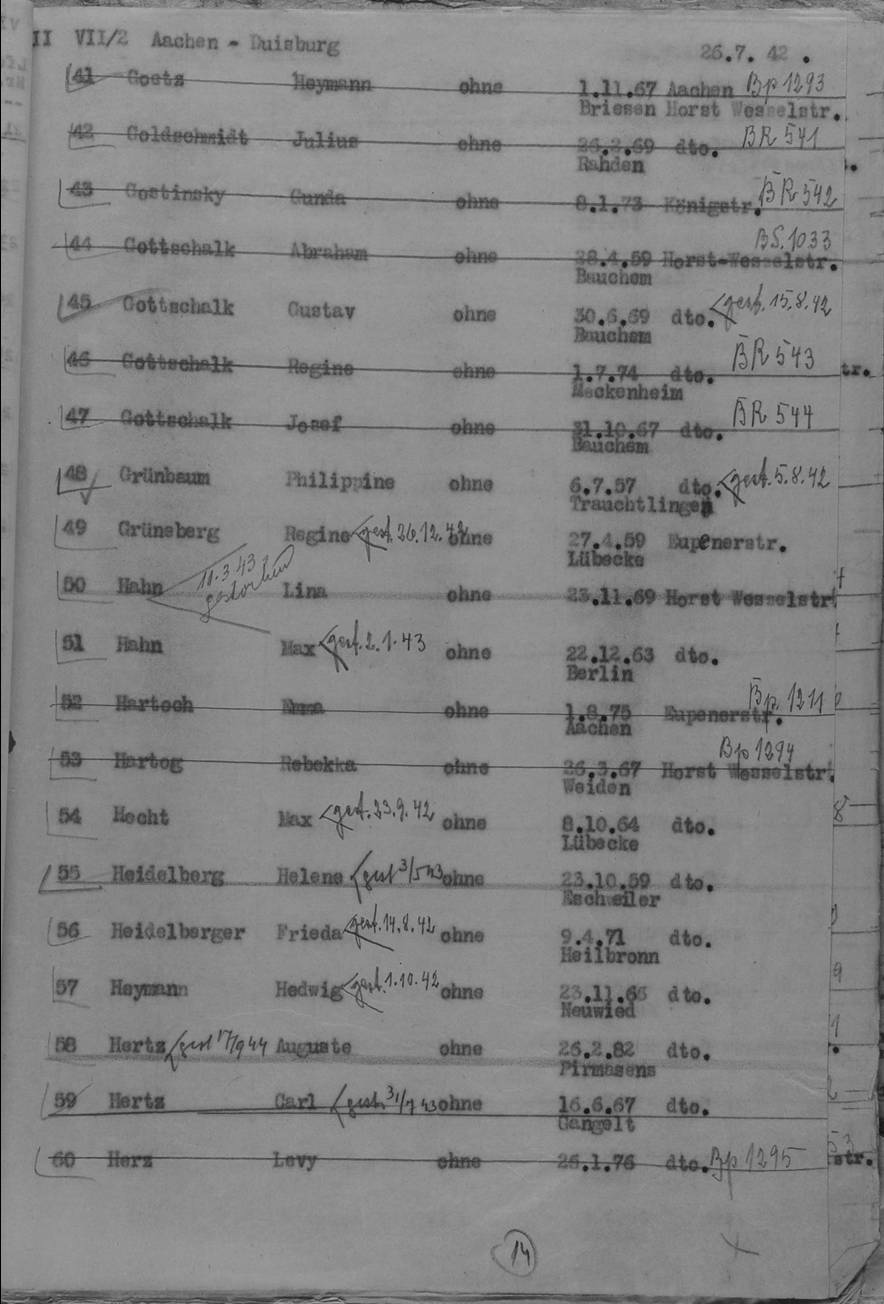 II VII/2 Aachen - Duisburg 26.7. 42 .
41 Goetz Heymann ohne 1.11.67 Aachen Bp 1293
Briesen Horst Wesselstr.
42 Goldschmidt Julius ohne 26.2.69 dto. BR 541
Rahden
43 Gostinsky Gunda ohne 8.1.73 Königstr. BR 542
BS. 1033
44 Gottschalk Abraham ohne 28.4.59 Horst-Wesselstr.
Bauchem
45 Gottschalk Gustav ohne 30.6.69 dto. gest. 15.8.42
Bauchem
46 Gottschalk Regine ohne 1.7.74 dto. BR 543 tr.
Meckenheim
47 Gottschalk Josef ohne 31.10.67 dto. BR 544
Bauchem
48 Grünbaum Philippine ohne 6.7.57 dto. gest. 5.8.42
Trauchtlingen
49 Grüneberg Regine gest. 26.12.42 ohne 27.4.59 Eupenerstr.
Lübecke
50 Hahn 11.3.43 gestorben Lina ohne 23.11.69 Horst Wesselstr
51 Hahn Max gest. 2.1.43 ohne 22.12.63 dto.
Berlin
52 Hartoch ohne 1.8.75 Eupenerstr. Bp. 1211
Aachen
53 Hartog Rebekka ohne 26.3.67 Horst Wesselstr. Bp 1294
Weiden
54 Hecht Max gest. 23.9.42 ohne 8.10.64 dto.
Lübecke
55 Heidelberg Helene gest 3/5 43 ohne 23.10.59 dto.
Eschweiler
56 Heidelberger Frieda gest. 14.8.42 ohne 9.4.71 dto.
Heilbronn
57 Heymann Hedwig gest. 1.10.42 ohne 23.11.66 dto.
Neuwied
58 Hertz gest 17/9 44 Auguste ohne 26.2.82 dto.
Pirmasens
59 Hertz Carl gest. 31/7 43 ohne 16.6.67 dto.
Gangelt
60 Herz Levy ohne 26.1.76 dto. Bp 1295 str.
14